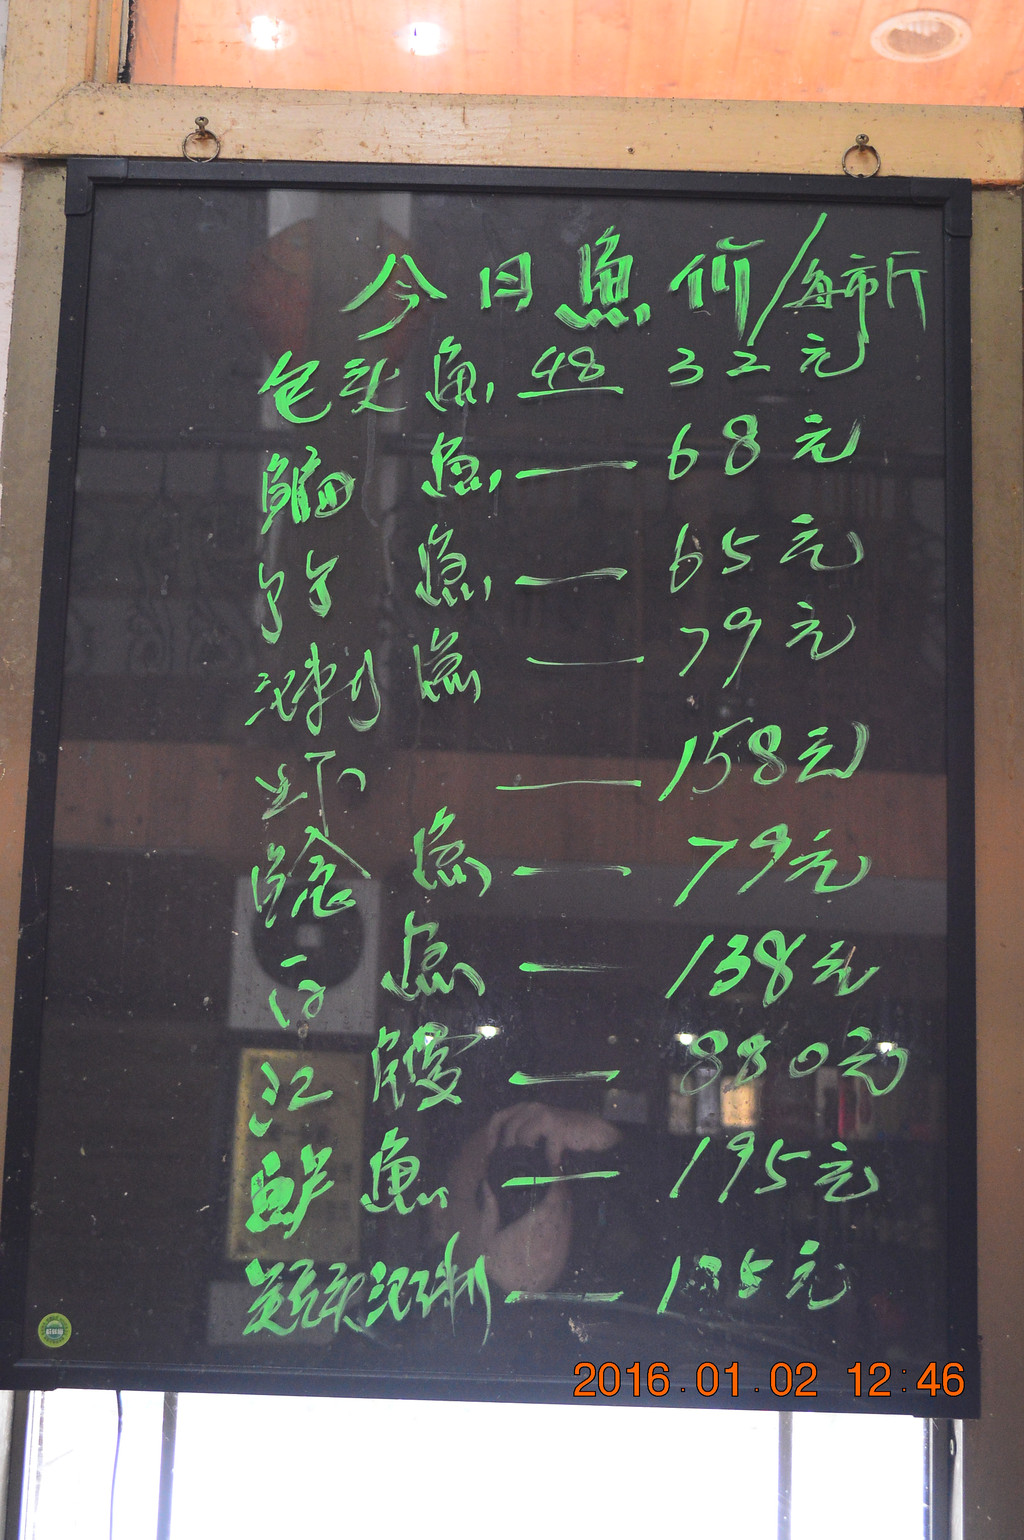 今日鱼价/每市斤
包头鱼 48 32元
鳊鱼 — 68元
鱼 — 65元
汪刺鱼 — 79元
虾 — 158元
鲶鱼 — 79元
白鱼 — 138元
江鳗 — 880元
鲜鱼 — 195元
汪刺 — 元
2016.01.02 12:46